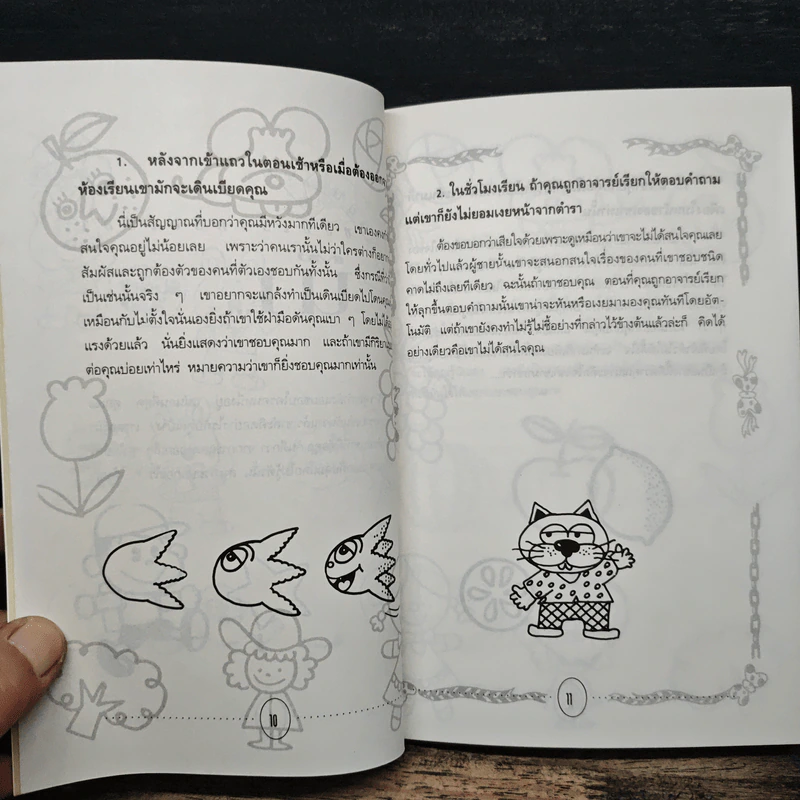 1. หลังจากเข้าแถวในตอนเช้าหรือเมื่อต้องออกจาก
ห้องเรียนเขามักจะเดินเบียดคุณ
นี่เป็นสัญญาณที่บอกว่าคุณมีหวังมากทีเดียว เขาเองคง
สนใจคุณอยู่ไม่น้อยเลย เพราะว่าคนเรานั้นไม่ว่าใครต่างก็อยาก
สัมผัสและถูกต้องตัวของคนที่ตัวเองชอบกันทั้งนั้น ซึ่งกรณีที่ว่า
เป็นเช่นนั้นจริง ๆ เขาอยากจะแกล้งทำเป็นเดินเบียดไปโดนคุณ
เหมือนกับไม่ตั้งใจนั่นเองยิ่งถ้าเขาใช้ฝ่ามือดันคุณเบา ๆ โดยไม่ได้ออก
แรงด้วยแล้ว นั่นยิ่งแสดงว่าเขาชอบคุณมาก และถ้าเขามีกิริยา
ต่อคุณบ่อยเท่าไหร่ หมายความว่าเขาก็ยิ่งชอบคุณมากเท่านั้น
10
2. ในชั่วโมงเรียน ถ้าคุณถูกอาจารย์เรียกให้ตอบคำถาม
แต่เขาก็ยังไม่ยอมเงยหน้าจากตำรา
ต้องขอบอกว่าเสียใจด้วยเพราะดูเหมือนว่าเขาจะไม่ได้สนใจคุณเลย
โดยทั่วไปแล้วผู้ชายนั้นเขาจะสนอกสนใจเรื่องของคนที่เขาชอบชนิด
คาดไม่ถึงเลยทีเดียว ฉะนั้นถ้าเขาชอบคุณ ตอนที่คุณถูกอาจารย์เรียก
ให้ลุกขึ้นตอบคำถามนั้นเขาน่าจะหันหรือเงยมามองคุณทันทีโดยอัต-
โนมัติ แต่ถ้าเขายังคงทำไม่รู้ไม่ชี้อย่างที่กล่าวไว้ข้างต้นแล้วล่ะก็ คิดได้
อย่างเดียวคือเขาไม่ได้สนใจคุณ
11